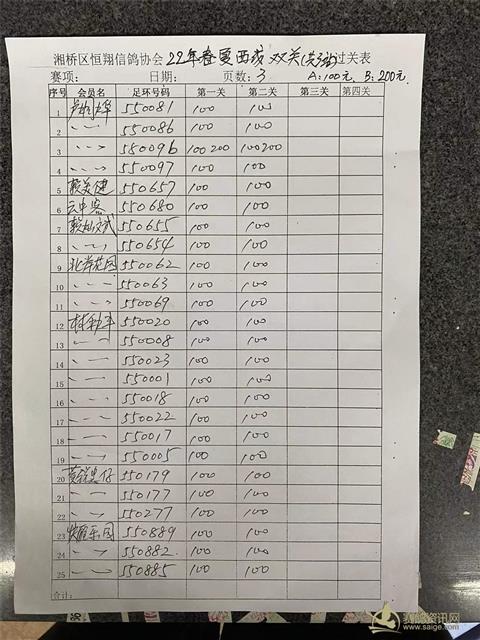 湘桥区恒翔信鸽协会 22年春夏西线 双关(共3张)过关表
赛项: 日期: 页数: 3 A:100元 B:200元
序号 会员名 足环号码 第一关 第二关 第三关 第四关
1 550081 100 100
2 〃 550086 100 100
3 〃 550096 100 200 100 200
4 〃 550097 100 100
5 赖美健 550657 100 100
6 云中客 550680 100 100
7 550655 100 100
8 〃 550654 100 100
9 北岸花园 550062 100 100
10 〃 550063 100 100
11 〃 550069 100 100
12 550020 100 100
13 〃 550008 100 100
14 〃 550023 100 100
15 〃 550001 100 100
16 〃 550018 100 100
17 〃 550022 100 100
18 〃 550017 100 100
19 〃 550005 100 100
20 550179 100 100
21 〃 550177 100 100
22 〃 550277 100 100
23 550889 100 100
24 〃 550882 100 100
25 〃 550885 100 100
合计:
赛鸽资讯网
www.saige.com